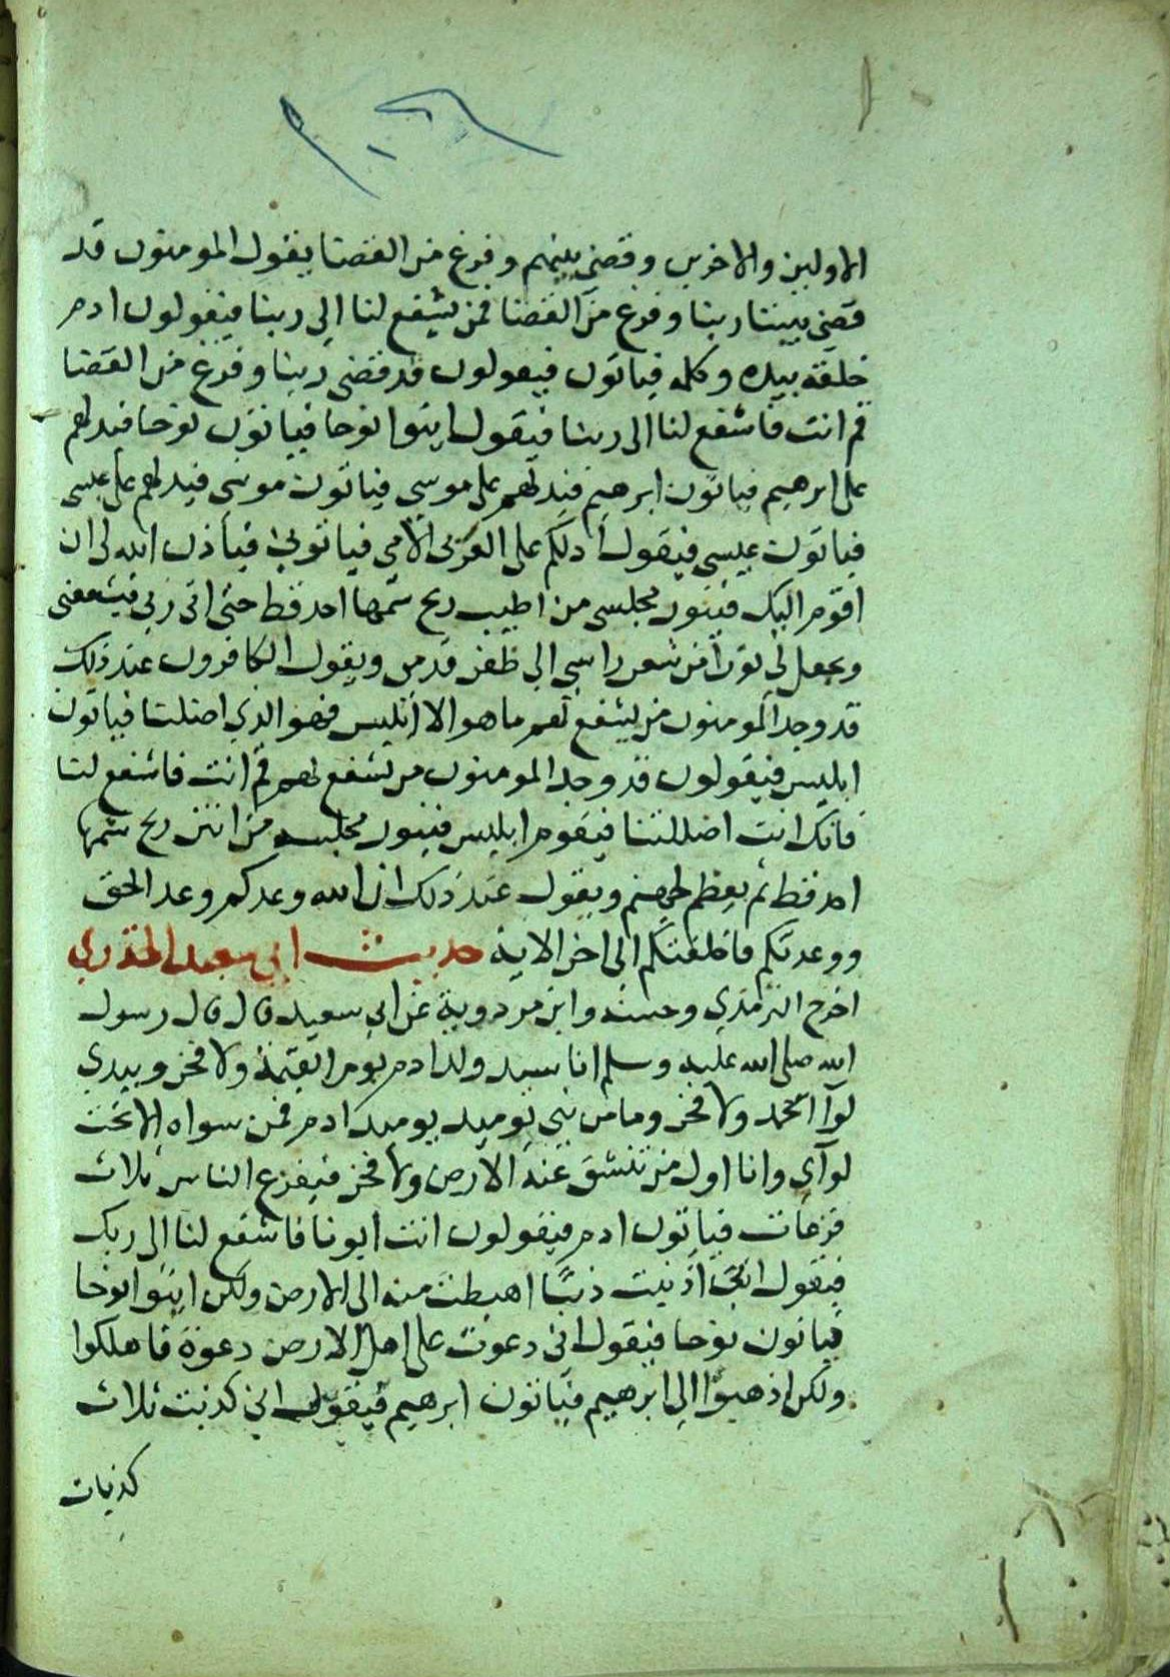 الاولين والاخرين وقضى بينهم وفرغ من القضا يقول المومنون قد
قضى بيننا ربنا وفرغ من القضا فمن يشفع لنا الى ربنا فيقولون ادم
خلقه بيده وكلمه فياتون فيقولون قد قضى ربنا وفرغ من القضا
قم انت فاشفع لنا الى ربنا فيقول ايتوا نوحا فياتون نوحا فيدلهم
على ابرهيم فياتون ابرهيم فيدلهم على موسى فياتون موسى فيدلهم على عيسى
فياتون عيسى فيقول ادلكم على العربي الامي فياتوني فياذن الله لي ان
اقوم اليك فيثور مجلسي من اطيب ريح شمها احد قط حتى اتي ربي فيشفعني
ويجعل لي نورا من شعر راسي الى ظفر قدمي ويقول الكافرون عند ذلك
قد وجد المومنون من يشفع لهم ما هو الا ابليس فهو الذي اضلنا فياتون
ابليس فيقولون قد وجد المومنون من يشفع لهم قم انت فاشفع لنا
فانك انت اضللتنا فيقوم ابليس فيثور مجلسه من انتن ريح شمها
احد قط ثم يعظم لجهنم ويقول عند ذلك ان الله وعدكم وعد الحق
ووعدتكم فاخلفتكم الى اخر الاية حديث ابي سعيد الخدري
اخرج الترمذي وحسنه وابن مردوية عن ابي سعيد قال قال رسول
الله صلى الله عليه وسلم انا سيد ولد ادم يوم القيمة ولا فخر وبيدي
لوآ الحمد ولا فخر وما من نبي يوميد يوميد ادم فمن سواه الا تحت
لوآي وانا اول من تنشق عنه الارض ولا فخر فيفزع الناس ثلاث
فزعات فياتون ادم فيقولون انت ابونا فاشفع لنا الى ربك
فيقول اني اذنبت ذنبا اهبطت منه الى الارض ولكن ايتوا نوحا
فياتون نوحا فيقول اني دعوت على اهل الارض دعوة فاهلكوا
ولكن اذهبوا الى ابرهيم فياتون ابرهيم فيقول اني كذبت ثلاث
كذبات